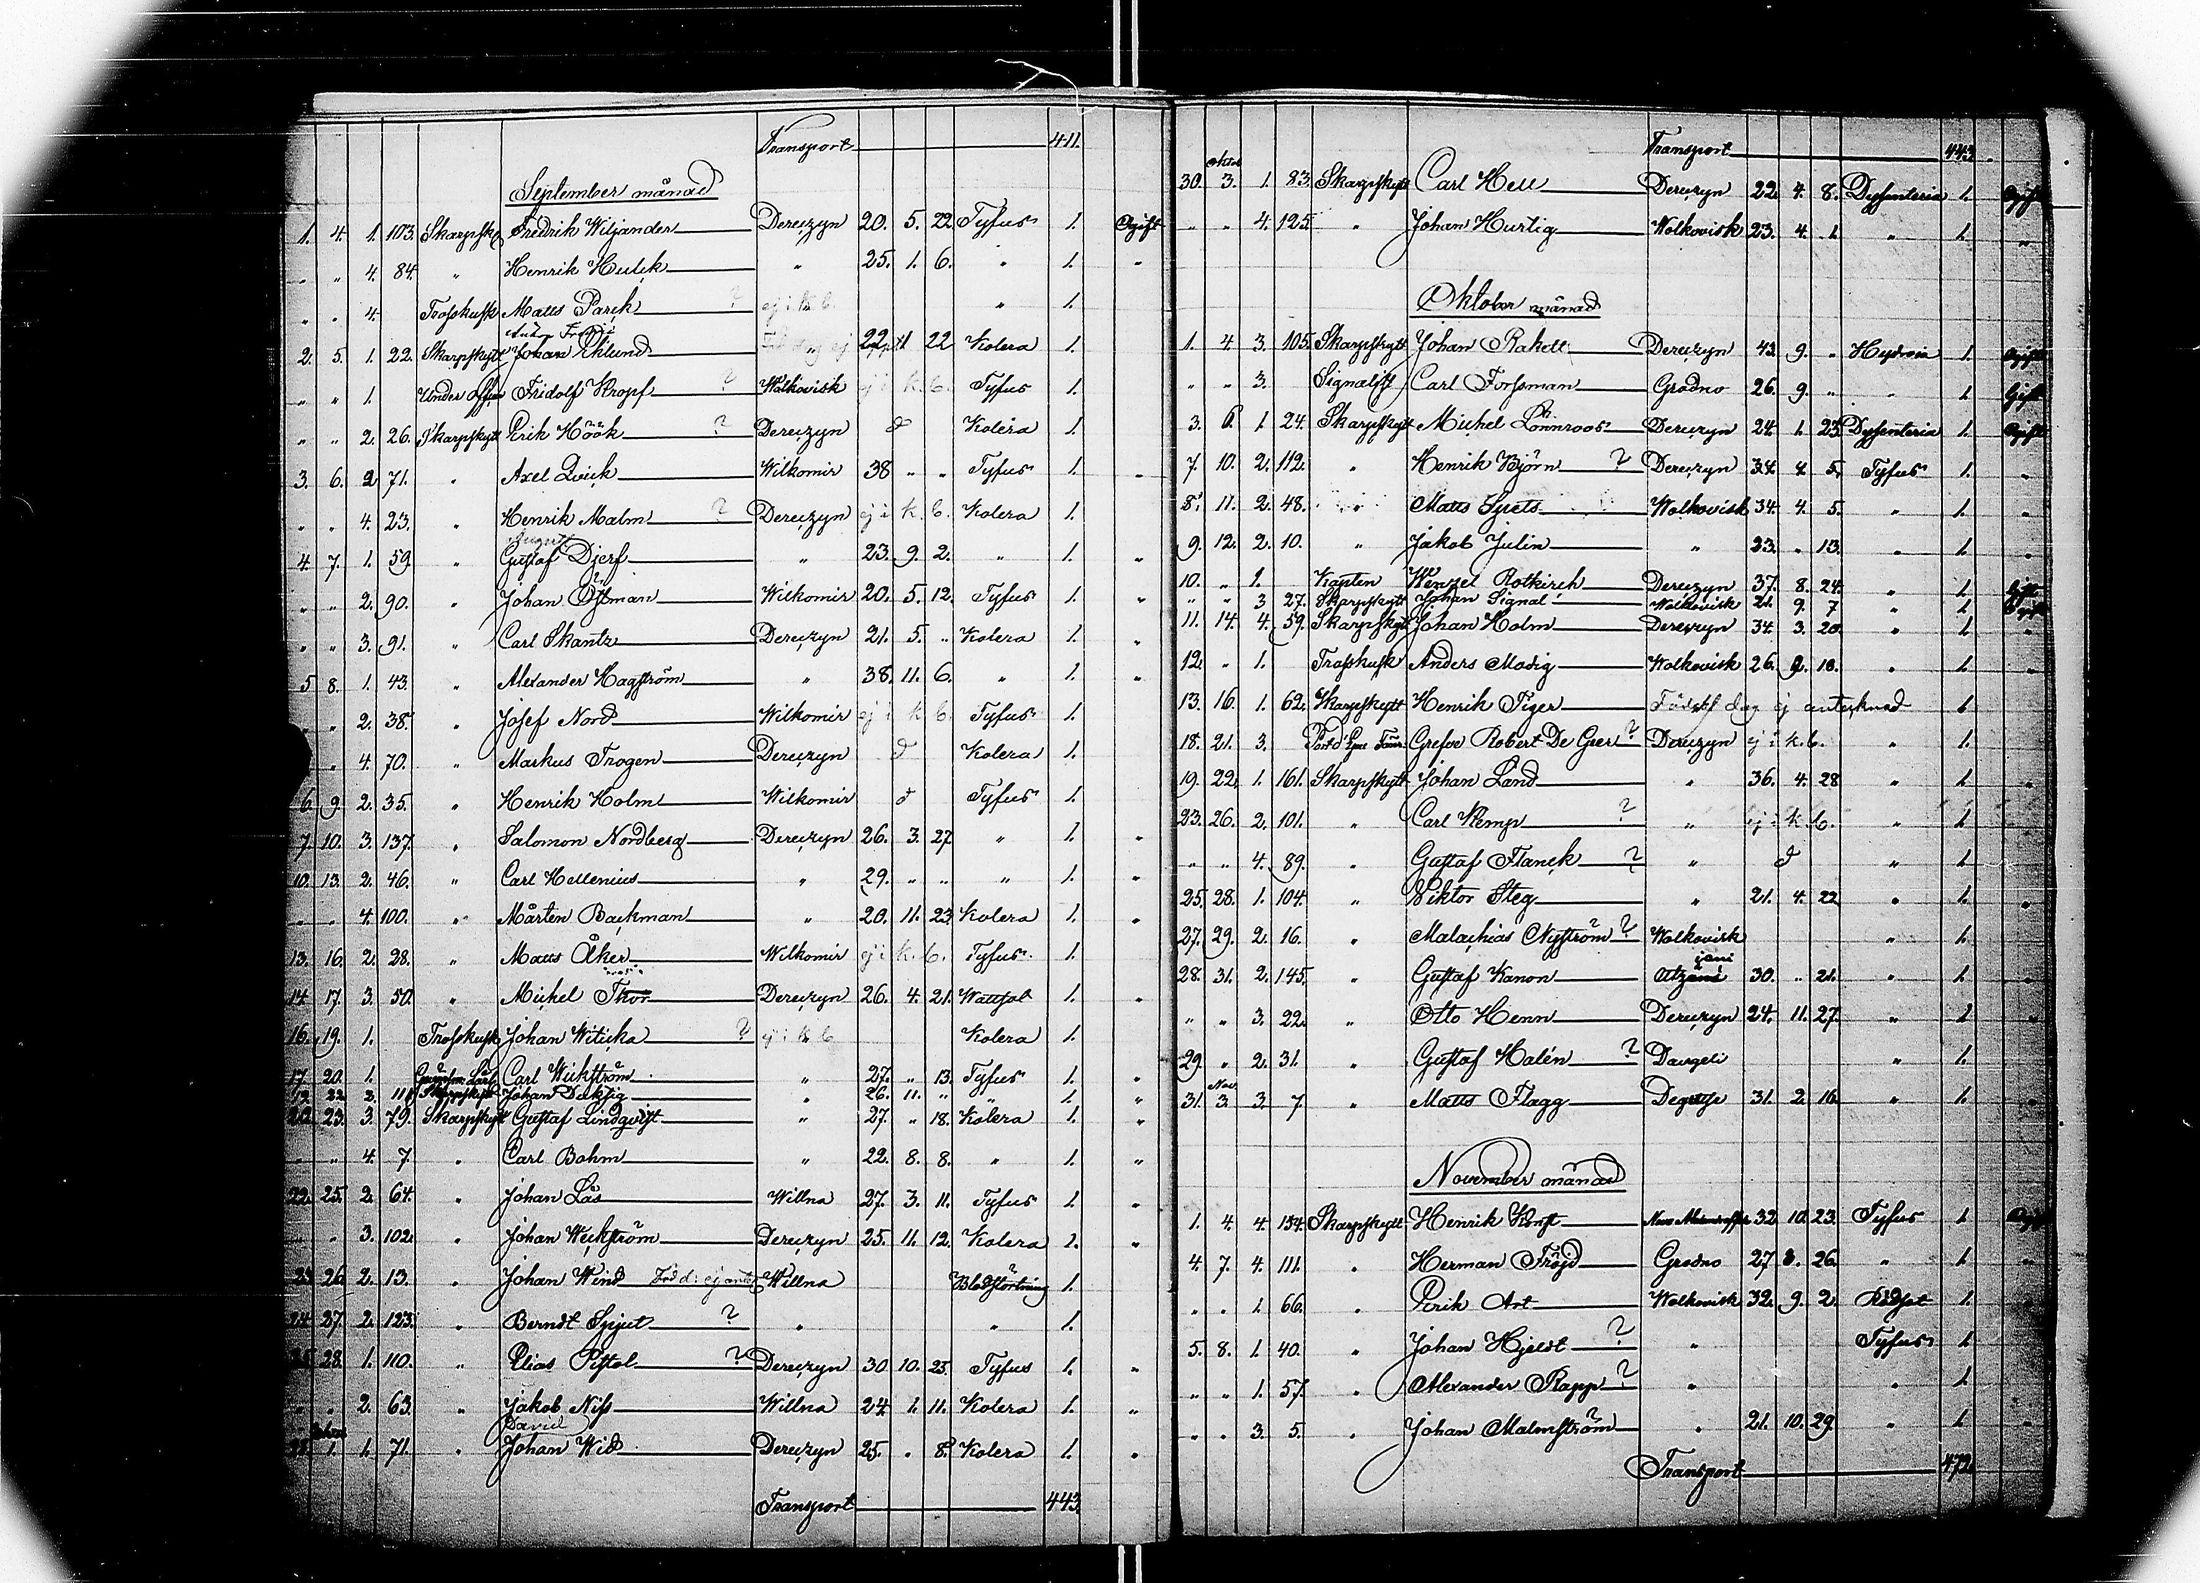 Transport 411.
September månad
1. 4. 1. 103. Skarpsk Fredrik Wiljander Dereczyn 20. 5. 22. Tyfus 1. Ogift
" " 4. 84. " Henrik " 25. 1. 6. " 1. "
" " 4. Trosskusk Matts ? ej i k. b. " 1.
2. 5. 1. 22. Skarpskytt Johan Eklund 22 Kolera 1.
" " 1. Under Offic Fridolf Kropf ? Wolkovisk ej i k. b. Tyfus 1.
" " 2. 26. Skarpskytt Erik Höök ? Dereczyn d Kolera 1.
3. 6. 2. 71. " Axel Qvick Wilkomir 38 " " Tyfus 1. "
" " 4. 23. " Henrik Malm ? Dereczyn ej i k. b. Kolera 1.
August
4. 7. 1. 59. " Gustaf Djerf " 23. 9. 2. " 1. "
" " 2. 90. " Johan Östman Wilkomir 20. 5. 12. Tyfus 1. "
" " 3. 91. " Carl Skantz Dereczyn 21. 5. " Kolera 1. "
5 8. 1. 43. " Alexander Hagström " 38. 11. 6. " 1. "
" 2. 38. " Josef Nord Wilkomir ej i k. b. Tyfus 1.
" 4. 70. " Markus Trogen Dereczyn d Kolera 1.
6. 9. 2. 35. " Henrik Holm Wilkomir d Tyfus 1.
7. 10. 3. 137. " Salomon Nordberg Dereczyn 26. 3. 27. " 1. "
10. 13. 2. 46. " Carl Hellenius " 29. " " " 1. "
" " 4. 100. " Mårten Backman " 20. 11. 23. Kolera 1. "
13. 16. 2. 28. " Matts Åker Wilkomir ej i k. b. Tyfus 1.
14. 17. 3. 50. " Michel Thor Dereczyn 26. 4. 21. Wattsot 1. "
16. 19. 1. Trosskusk Johan Witicka ? ej i k b Kolera 1.
17. 20. 1. Carl Wickström " 27. " 13. Tyfus 1. "
Skarpskytt Johan Duktig " 26. 11. " " 1. "
23. 3. 79. Skarpskytt Gustaf Lindqvist " 27. " 18. Kolera 1. "
" " 4. 7. " Carl Bohm " 22. 8. 8. " 1. "
22. 25. 2. 64. " Johan Lås Willna 27. 3. 11. Tyfus 1. "
" " 3. 102. " Johan Weckström Dereczyn 25. 11. 12. Kolera 1. "
23 26. 2. 13. " Johan Wind Föd d: ej ant Willna Blodstörtning 1.
24. 27. 2. 123. " Berndt Spjut ? " " 1.
28. 1. 110. " Elias Pistol ? Dereczyn 30. 10. 23. Tyfus 1. "
" " 2. 63. " Jakob Niss Willna 24. 1. 11. Kolera 1. "
David
1. 1. 71. " Johan Wid Dereczyn 25. " 8. Kolera 1. "
Transport 443.
Transport 443.
30. 3. 1. 83. Skarpskytt Carl Hell Dereczyn 22. 4. 8. Dyssenteria 1. Ogift
" " 4. 125. " Johan Hurtig Wolkovisk 23. 4. 1. " 1. "
Oktober månad
1. 4. 3. 105. Skarpskytt Johan Rakett Dereczyn 43. 9. " 1. Ogift
" " 3. Signalist Carl Forssman Grodno 26. 9. " " 1. Gift
3. 6. 1. 24. Skarpskytt Michel Lönnroos Dereczyn 24. 1. 23. Dyssenteria 1. Ogift
7. 10. 2. 112. " Henrik Björn ? Dereczyn 34. 4. 5. Tyfus 1. "
8. 11. 2. 48. " Matts Spets Wolkovisk 34. 4. 5. " 1. "
9. 12. 2. 10. " Jakob Julin " 23. " 13. " 1. "
10. " 1. Kapten Wenzel Rotkirch Dereczyn 37. 8. 24. " 1. Gift
" " 3 27. Skarpskytt Johan Signal Wolkovisk 21. 9. 7 " 1. Ogift
11. 14. 4. 59. Skarpskytt Johan Holm Dereczyn 34. 3. 20. " 1. "
12. " 1. Trosskusk Anders Modig Wolkovisk 26. 2. 10. " 1. "
13. 16. 1. 62. Skarpskytt Henrik Tiger Födelsedag ej antecknad 1.
18. 21. 3. Grefve Robert De Geer ? Dereczyn ej i k. b. " 1.
19. 22. 1. 161. Skarpskytt Johan Land " 36. 4. 28 " 1. "
23. 26. 2. 101. " Carl Kemp ? " ej i k. b. " 1.
" " 4. 89. " Gustaf Flanck ? " d " 1.
25. 28. 1. 104. " Viktor Steg " 21. 4. 22 " 1. "
27. 29. 2. 16. " Malachias Nyström ? Wolkovisk " 1.
28. 31. 2. 145. " Gustaf Kanon 30. " 21. " 1. "
" " 3. 22. " Otto Henn Dereczyn 24. 11. 27. " 1. "
29. " 2. 31. " Gustaf Halén ? " 1.
Nov.
31. 3. 3. 7 " Matts Flagg 31. 2. 16. " 1. "
November månad
1. 4. 4. 134. Skarpskytt Henrik Konst 32. 10. 23. Tyfus 1. Ogift
4. 7. 4. 111. " Herman Fröjd Grodno 27 8. 26. " 1. "
" " 1. 66. " Erik Art Wolkovisk 32. 9. 2. Rödsot 1. "
5. 8. 1. 40. " Johan Hjeldt ? " Tyfus 1.
" " 1. 57. " Alexander Rapp ? " " 1.
" " 3. 5. " Johan Malmström " 21. 10. 29. " 1. "
Transport 472.